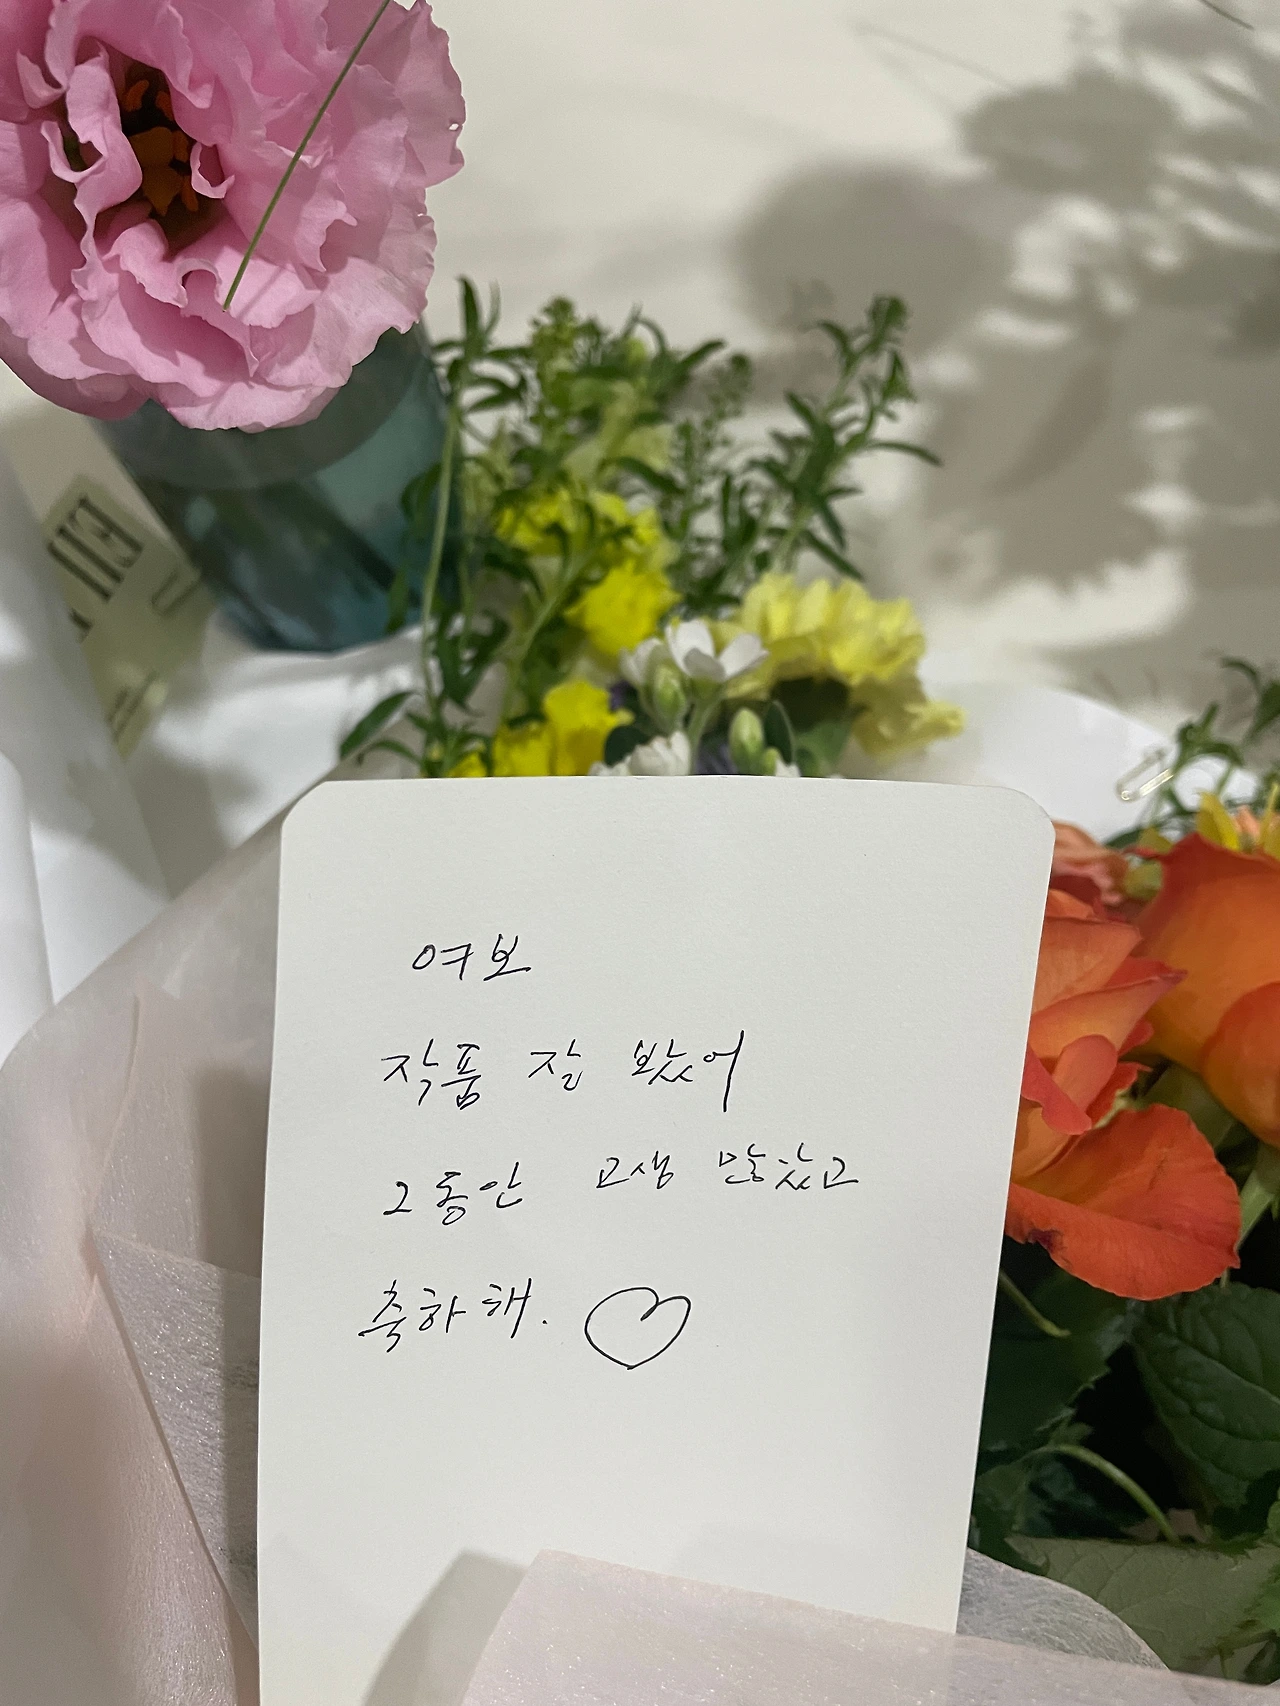 여보
작품 잘 봤어
그동안 고생 많았고
축하해. ♡